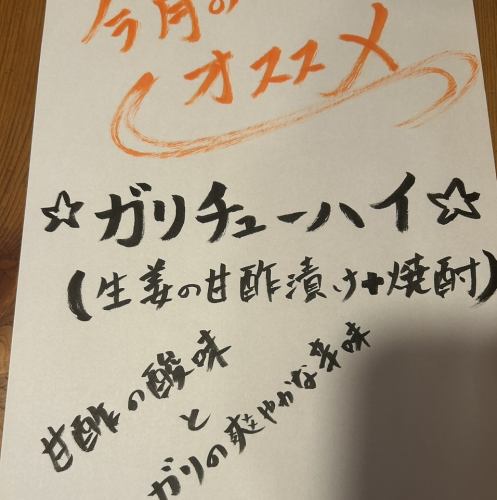 今月の
オススメ
☆ガリチューハイ☆
(生姜の甘酢漬け+焼酎)
甘酢の酸味
と
ガリの爽やかな辛味